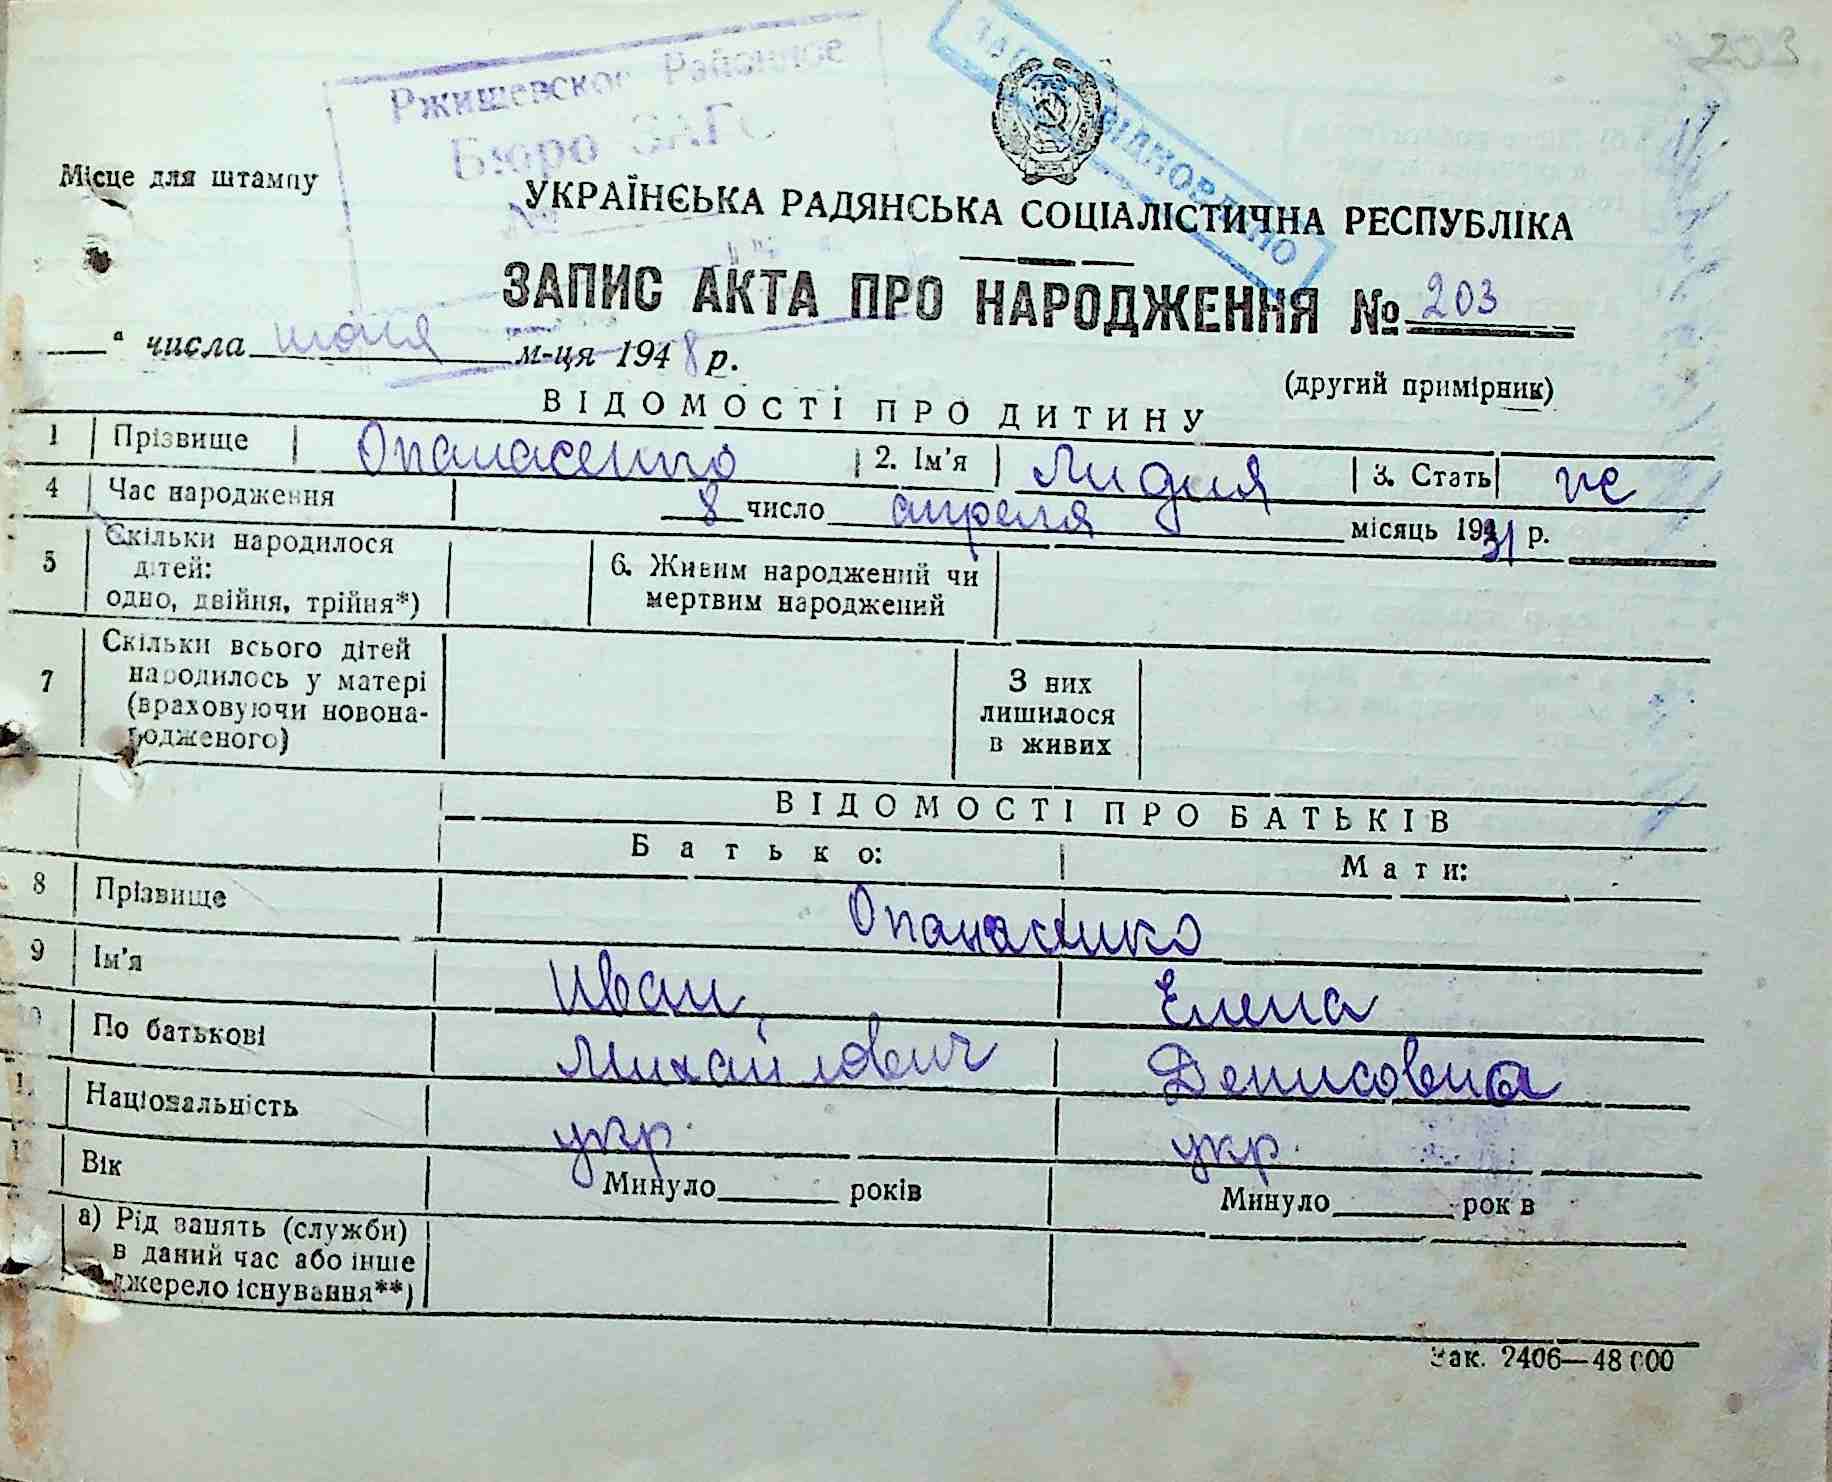 203
Ржищевское Районное
Бюро ЗАГС
№
ВІДНОВЛЕНО
Місце для штампу
УКРАЇНСЬКА РАДЯНСЬКА СОЦІАЛІСТИЧНА РЕСПУБЛІКА
ЗАПИС АКТА ПРО НАРОДЖЕННЯ № 203
" числа июня м-ця 1948 р.
(другий примірник)
ВІДОМОСТІ ПРО ДИТИНУ
1 Прізвище Опанасенко 2. Ім'я Лидия 3. Стать же
4 Час народження 8 число апреля місяць 1931 р.
5 Скільки народилося дітей: одно, двійня, трійня*) 6. Живим народжений чи мертвим народжений
7 Скільки всього дітей народилось у матері (враховуючи новонародженого) З них лишилося в живих
ВІДОМОСТІ ПРО БАТЬКІВ
Батько: Мати:
8 Прізвище Опанасенко
9 Ім'я Иван Елена
10 По батькові Михайлович Денисовна
11 Національність укр. укр.
12 Вік Минуло років Минуло років
а) Рід занять (служби) в даний час або інше джерело існування**)
Зак. 2406—48000